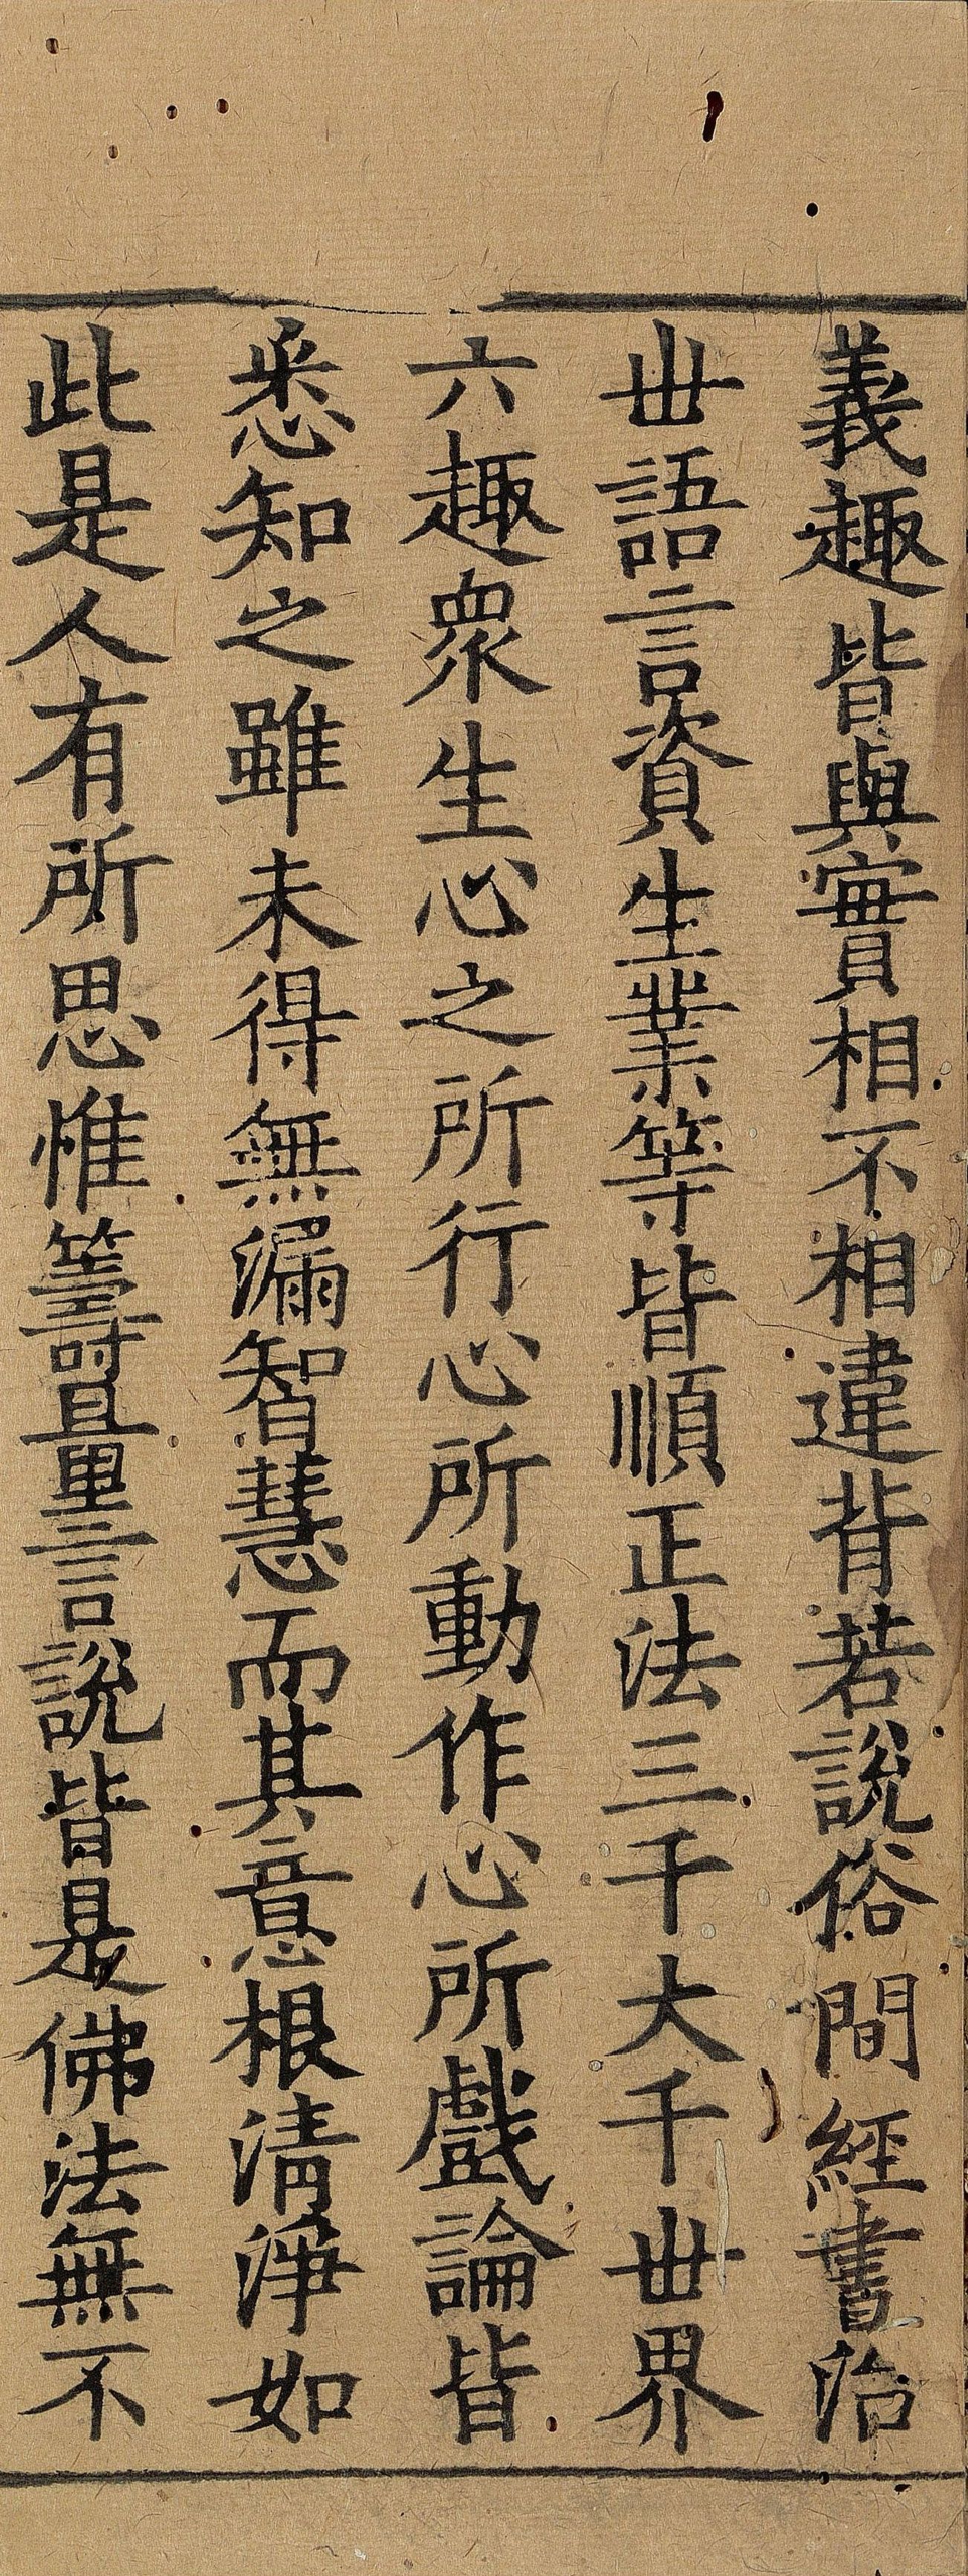 義趣皆與實相不相違背若說俗間經書治
丗語言資生業等皆順正法三千大千丗界
六趣衆生心之所行心所動作心所戲論皆
悉知之雖未得無漏智慧而其意根清淨如
此是人有所思惟籌量言說皆是佛法無不